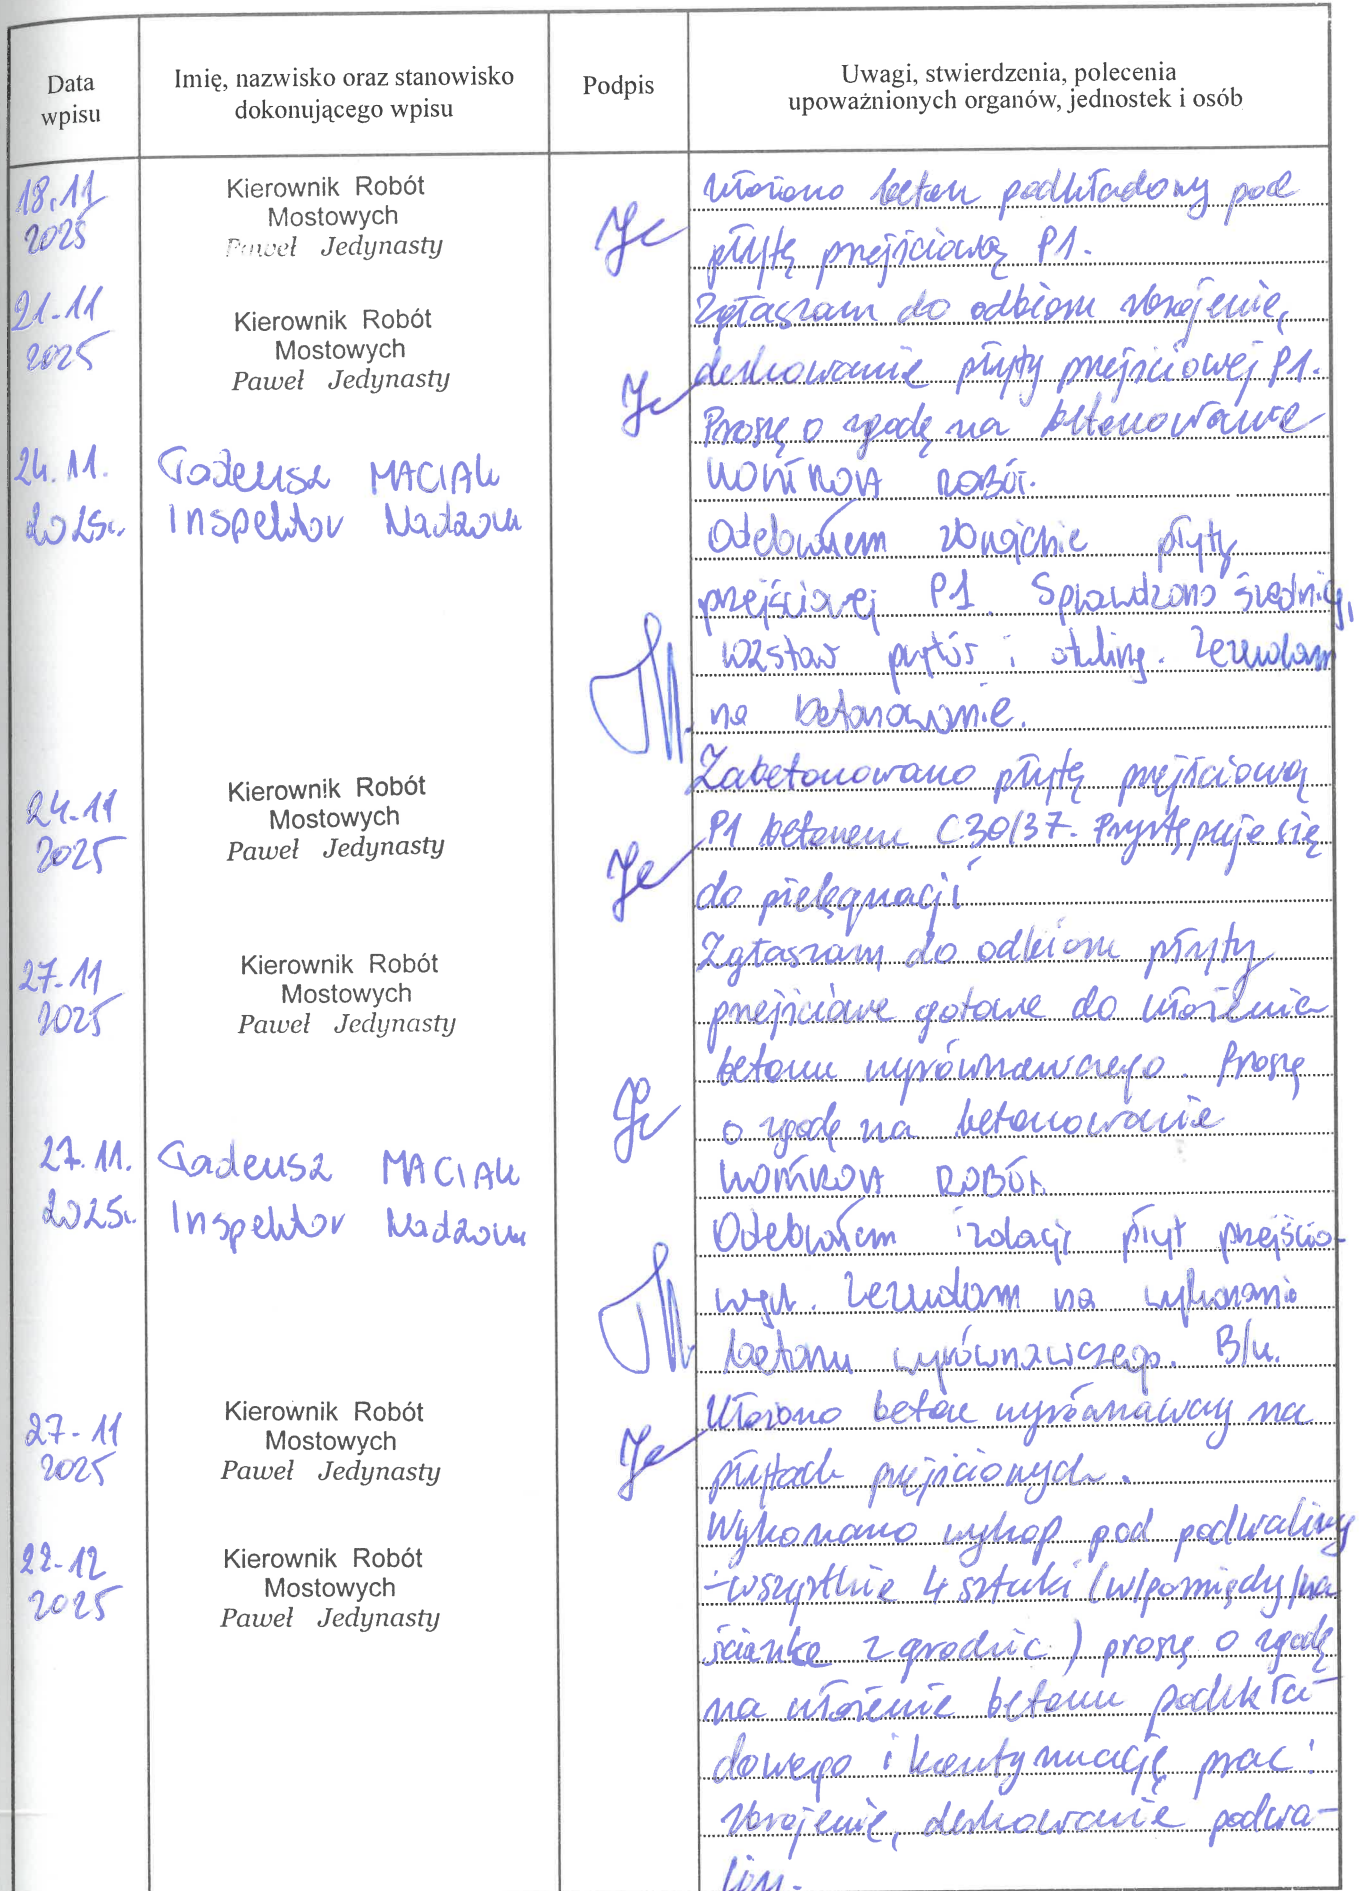 Data wpisu
Imię, nazwisko oraz stanowisko dokonującego wpisu
Podpis
Uwagi, stwierdzenia, polecenia
upoważnionych organów, jednostek i osób
18.11
2025
Kierownik Robót
Mostowych
Paweł Jedynasty
Ułożono beton podkładowy pod
płytę przejściową P1.
21.11
2025
Kierownik Robót
Mostowych
Paweł Jedynasty
Zgłaszam do odbioru zbrojenie,
deskowanie płyty przejściowej P1.
Proszę o zgodę na betonowanie
24.11.
2025r.
Tadeusz MACIAK
Inspektor Nadzoru
KONTROLA ROBÓT.
Odebrałem zbrojenie płyty
przejściowej P1. Sprawdzono średnicę,
rozstaw prętów i otulinę. Zezwalam
na betonowanie.
24.11
2025
Kierownik Robót
Mostowych
Paweł Jedynasty
Zabetonowano płytę przejściową
P1 betonem C30/37. Przystępuje się
do pielęgnacji
27.11
2025
Kierownik Robót
Mostowych
Paweł Jedynasty
Zgłaszam do odbioru płyty
przejściowe gotowe do ułożenia
betonu wyrównawczego. Proszę
o zgodę na betonowanie
27.11.
2025r.
Tadeusz MACIAK
Inspektor Nadzoru
KONTROLA ROBÓT.
Odebrałem izolację płyt przejścio-
wych. Zezwalam na wykonanie
betonu wyrównawczego. B/u.
27-11
2025
Kierownik Robót
Mostowych
Paweł Jedynasty
Ułożono beton wyrównawczy na
płytach przejściowych.
22-12
2025
Kierownik Robót
Mostowych
Paweł Jedynasty
Wykonano wykop pod podwaliny
- wszystkie 4 sztuki (w/pomiędzy/na
ściankę z grodzic) proszę o zgodę
na ułożenie betonu podkła-
dowego i kontynuację prac:
zbrojenie, deskowanie podwa-
lin.